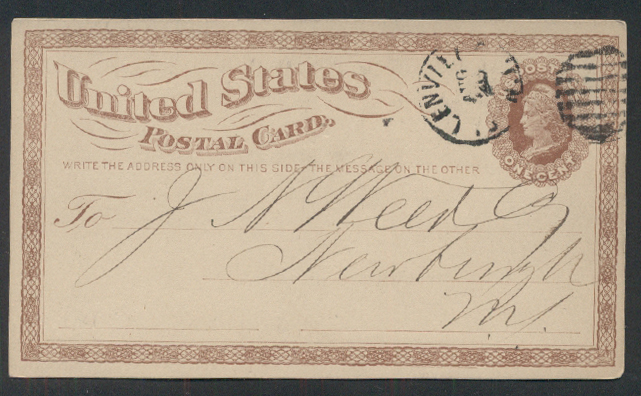 United States
POSTAL CARD.
WRITE THE ADDRESS ONLY ON THIS SIDE-THE MESSAGE ON THE OTHER
ONE CENT
To J. N. Weed
Newburgh
N.Y.